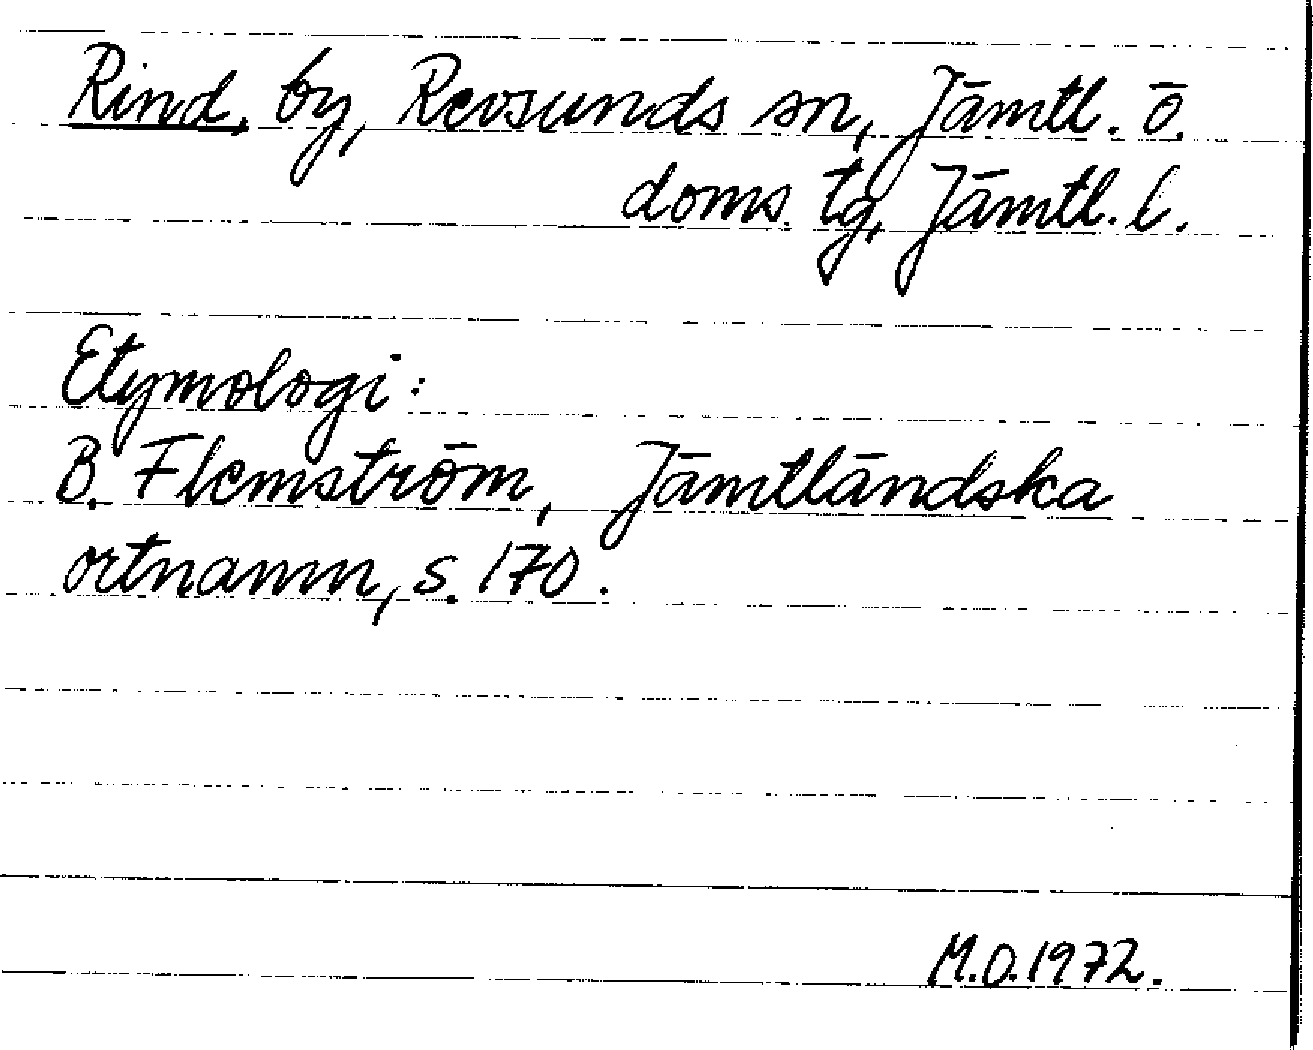 Rind, by, Revsunds sn, Jämtl. ö.
doms. tg, Jämtl. l.
Etymologi:
B. Flemström, Jämtländska
ortnamn, s. 170.
M.O. 1972.